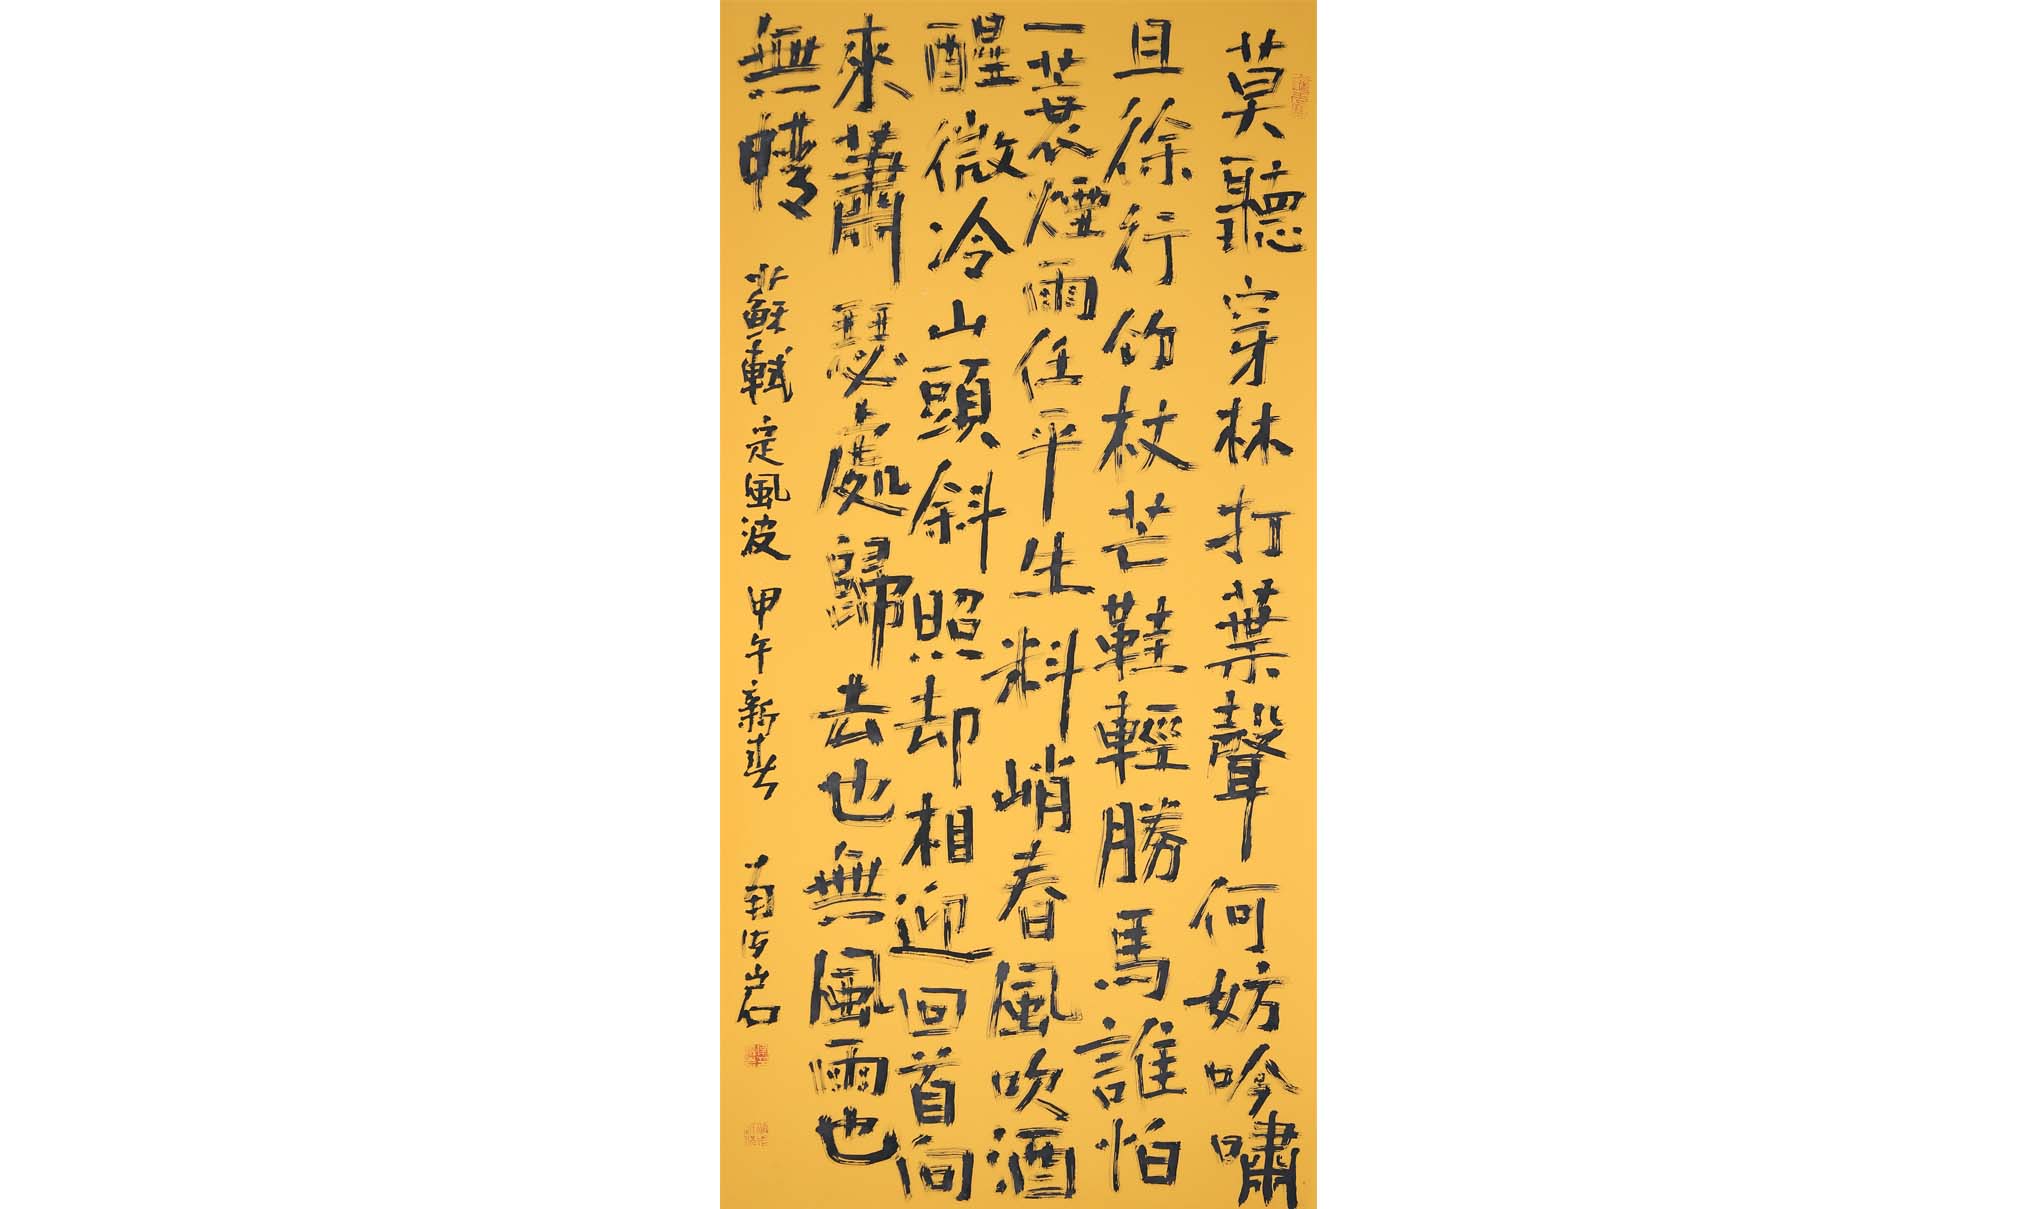 莫聽穿林打葉聲何妨吟嘯
且徐行竹杖芒鞋輕勝馬誰怕
一蓑煙雨任平生料峭春風吹酒
醒微冷山頭斜照却相迎回首向
來蕭瑟處歸去也無風雨也
無晴 蘇軾定風波 甲午新春 南海岩